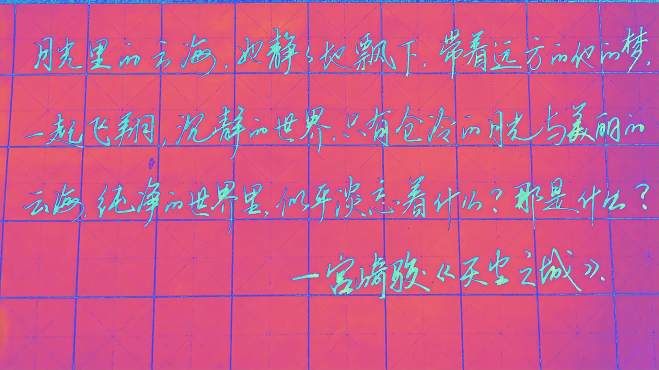 月光里的云海,她静静地飘下,带着远方的他的梦,
一起飞翔,沉静的世界,只有仓冷的月光与美丽的
云海,纯净的世界里,似乎淡忘着什么?那是什么?
一宫崎骏《天空之城》.